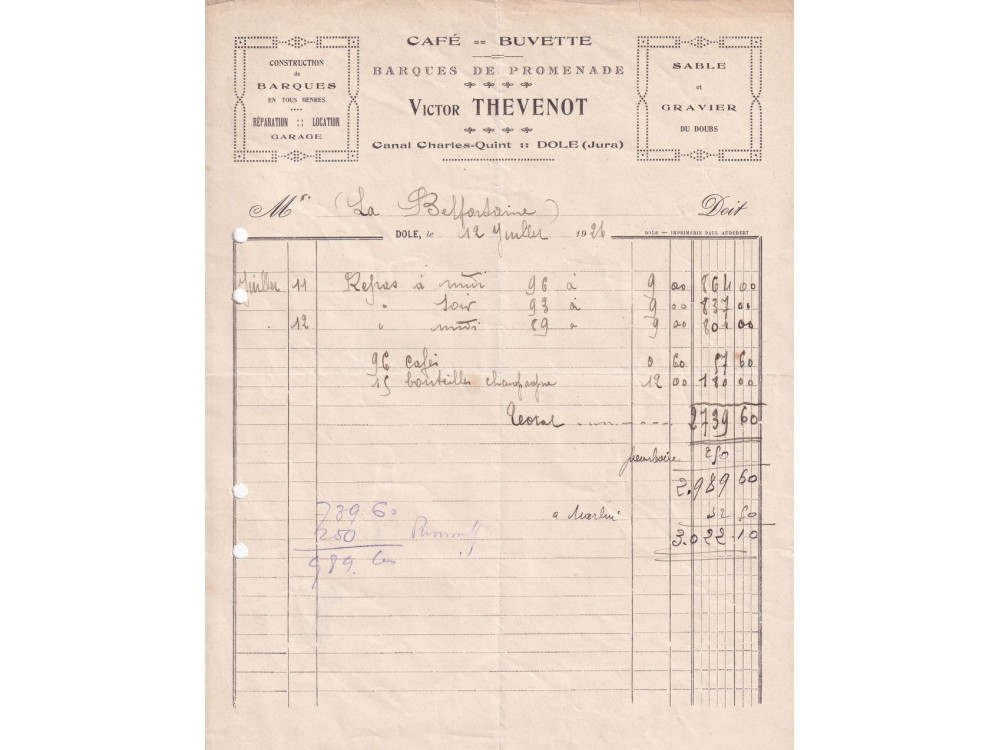 CAFÉ :: BUVETTE
BARQUES DE PROMENADE
VICTOR THEVENOT
Canal Charles-Quint :: DOLE (Jura)
CONSTRUCTION
de
BARQUES
EN TOUS GENRES
RÉPARATION :: LOCATION
GARAGE
SABLE
et
GRAVIER
DU DOUBS
Mr. (La Belfortaine) Doit
DOLE, le 12 Juillet 1926
DOLE — IMPRIMERIE PAUL AUDEBERT
Juillet 11 Repas à midi 96 à 9 00 864 00
" soir 93 à 9 00 837 00
. 12 " midi 89 à 9 00 801 00
96 cafés 0 60 57 60
15 bouteilles champagne 12 00 180 00
Total 2739 60
pourboire 250
2.989 60
a 32 50
3.022.10
739.60
250
989.60